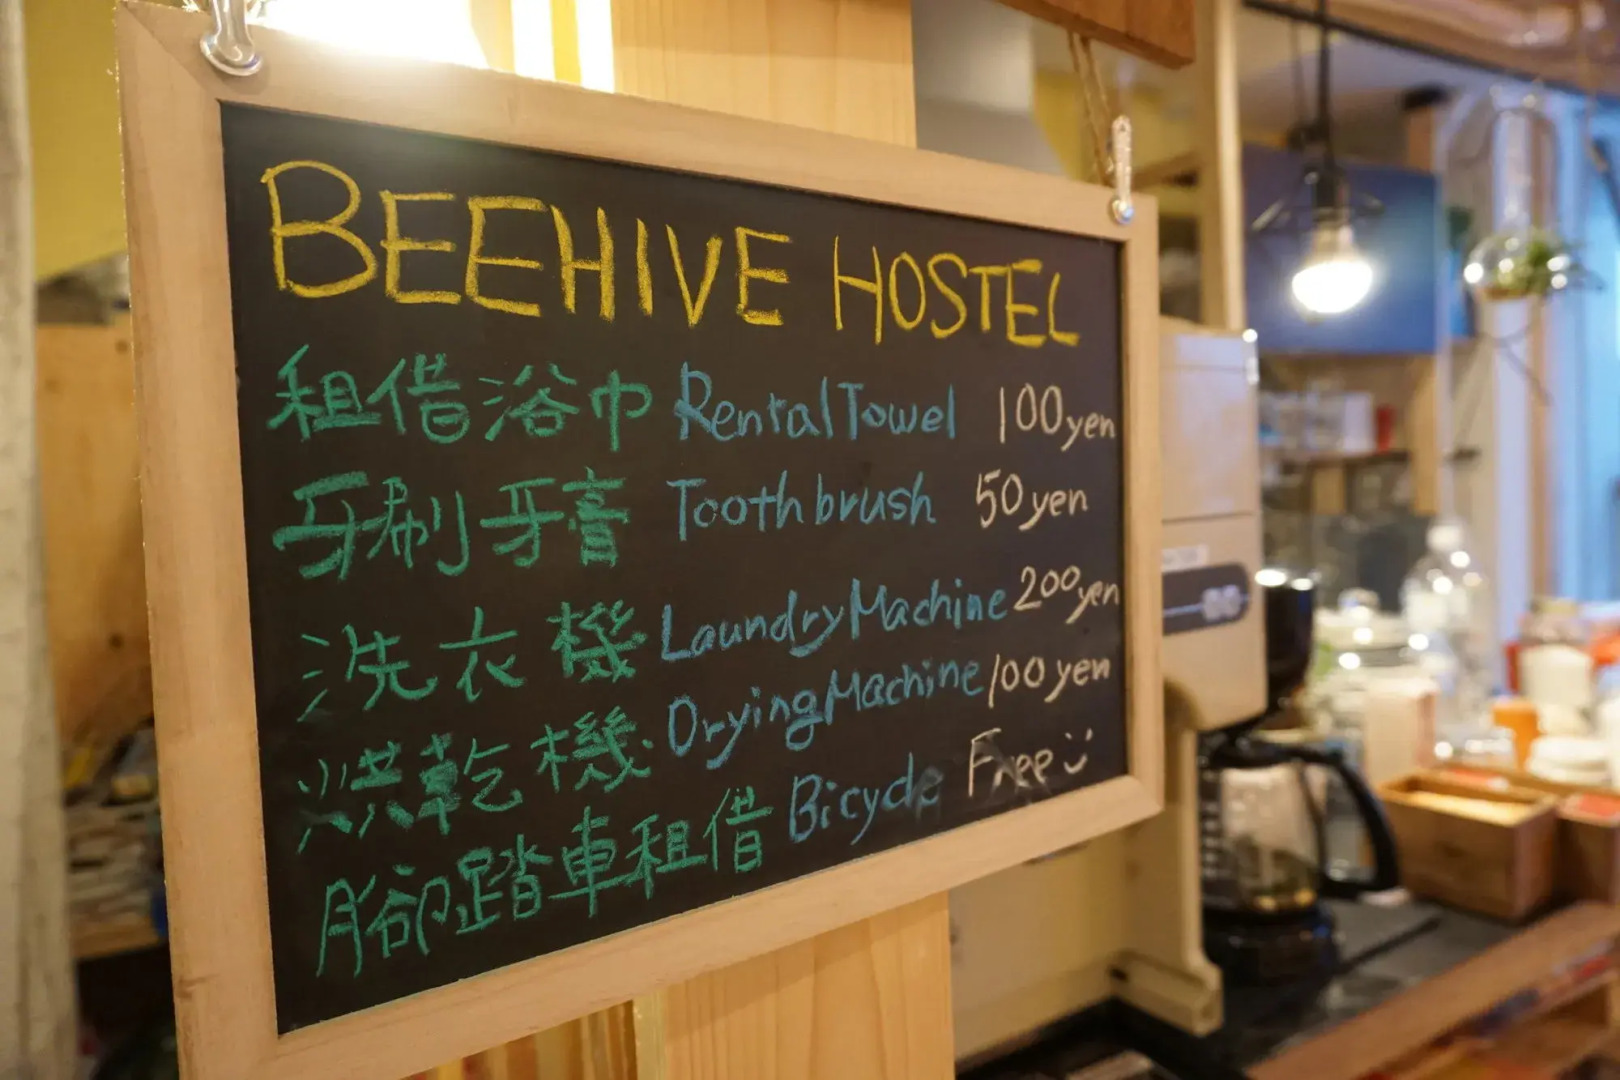 BEEHIVE HOSTEL
租借浴巾 Rental Towel 100yen
牙刷牙膏 Toothbrush 50yen
洗衣機 Laundry Machine 200yen
烘乾機 Drying Machine 100yen
腳踏車租借 Bicycle Free